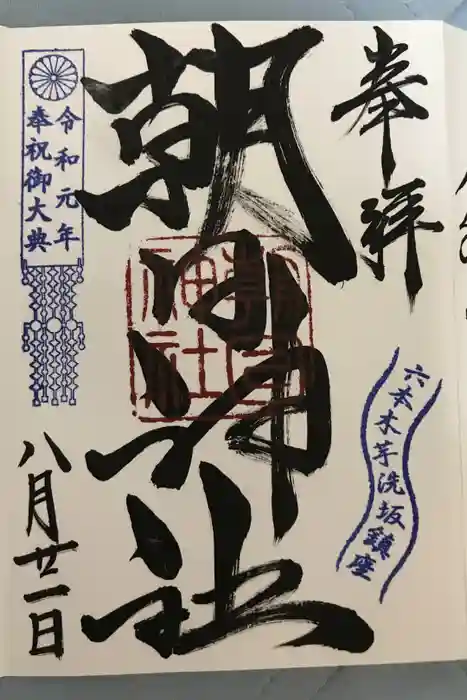 奉拝
六本木芋洗坂鎮座
朝日神社
朝日
神社
令和元年
奉祝御大典
八月廿一日